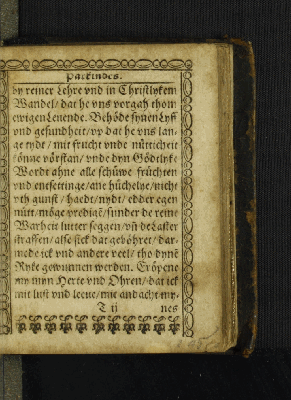 parkindes.
by reiner Lehre vnd in Christlykem
Wandel / dat he vns vorgah thom
ewigen Leuende. Behöde synen Lyff
vnd gesundheit / vp dat he vns lan-
ge tydt / mit frucht vnde nütticheit
könne vörstan / vnde dyn Gödtlyke
Wordt ahne alle schüwe früchten
vnd entsettinge / ane hüchelye / nicht
vth gunst / haedt / nydt / edder egen
nütt / möge predigē / sunder de reine
Warheit lutter seggen / vñ de Laster
straffen / alse sick dat geböhret / dar-
mede ick vnd andere veel / tho dynē
Ryke gewunnen werden. Eröpene
my myn Herte vnd Ohren / dat ick
mit lust vnd leeue / mit andacht my-
T ij
nes